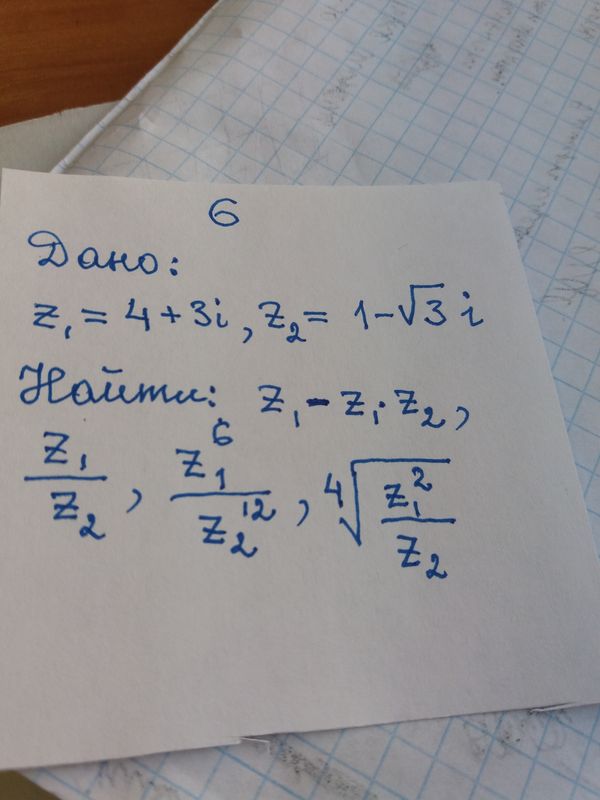 6
Дано:
z₁ = 4 + 3i, z₂ = 1 - √3 i
Найти: z₁ - z₁ · z₂,
z₁/z₂, z₁⁶/z₂¹², ⁴√(z₁²/z₂)